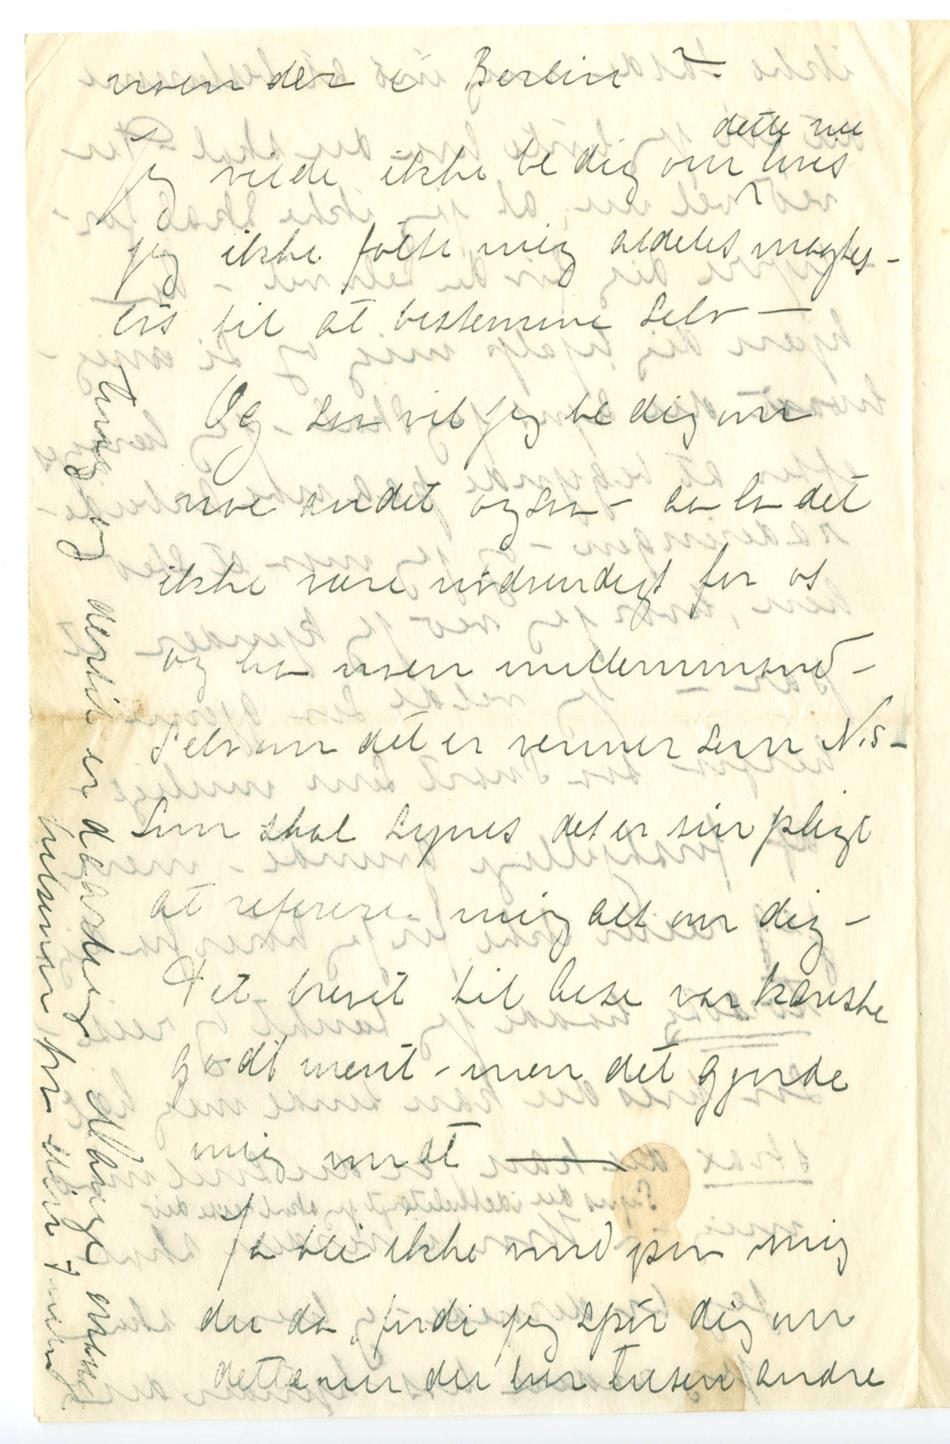 noen der i Berlin?
dette nu
Jeg vilde ikke be dig om hvis
jeg ikke følte mig aldeles magtes-
løs til at bestemme selv —
Og saa vil jeg be dig om
noe andet ogsaa – La det
ikke være nødvendigt for os
og ha noen mellemmand –
Selv om det er venner som N.s –
Som skal synes det er sin pligt
at referere mig alt om dig –
Det brevet til Aase var kanske
godt ment – men det gjorde
mig ondt —
Ja bli ikke vred paa mig
du da, fordi jeg spør dig om
dette nu du har tusen andre
ting og dertil er daarlig Mange mange
hilsener fra din